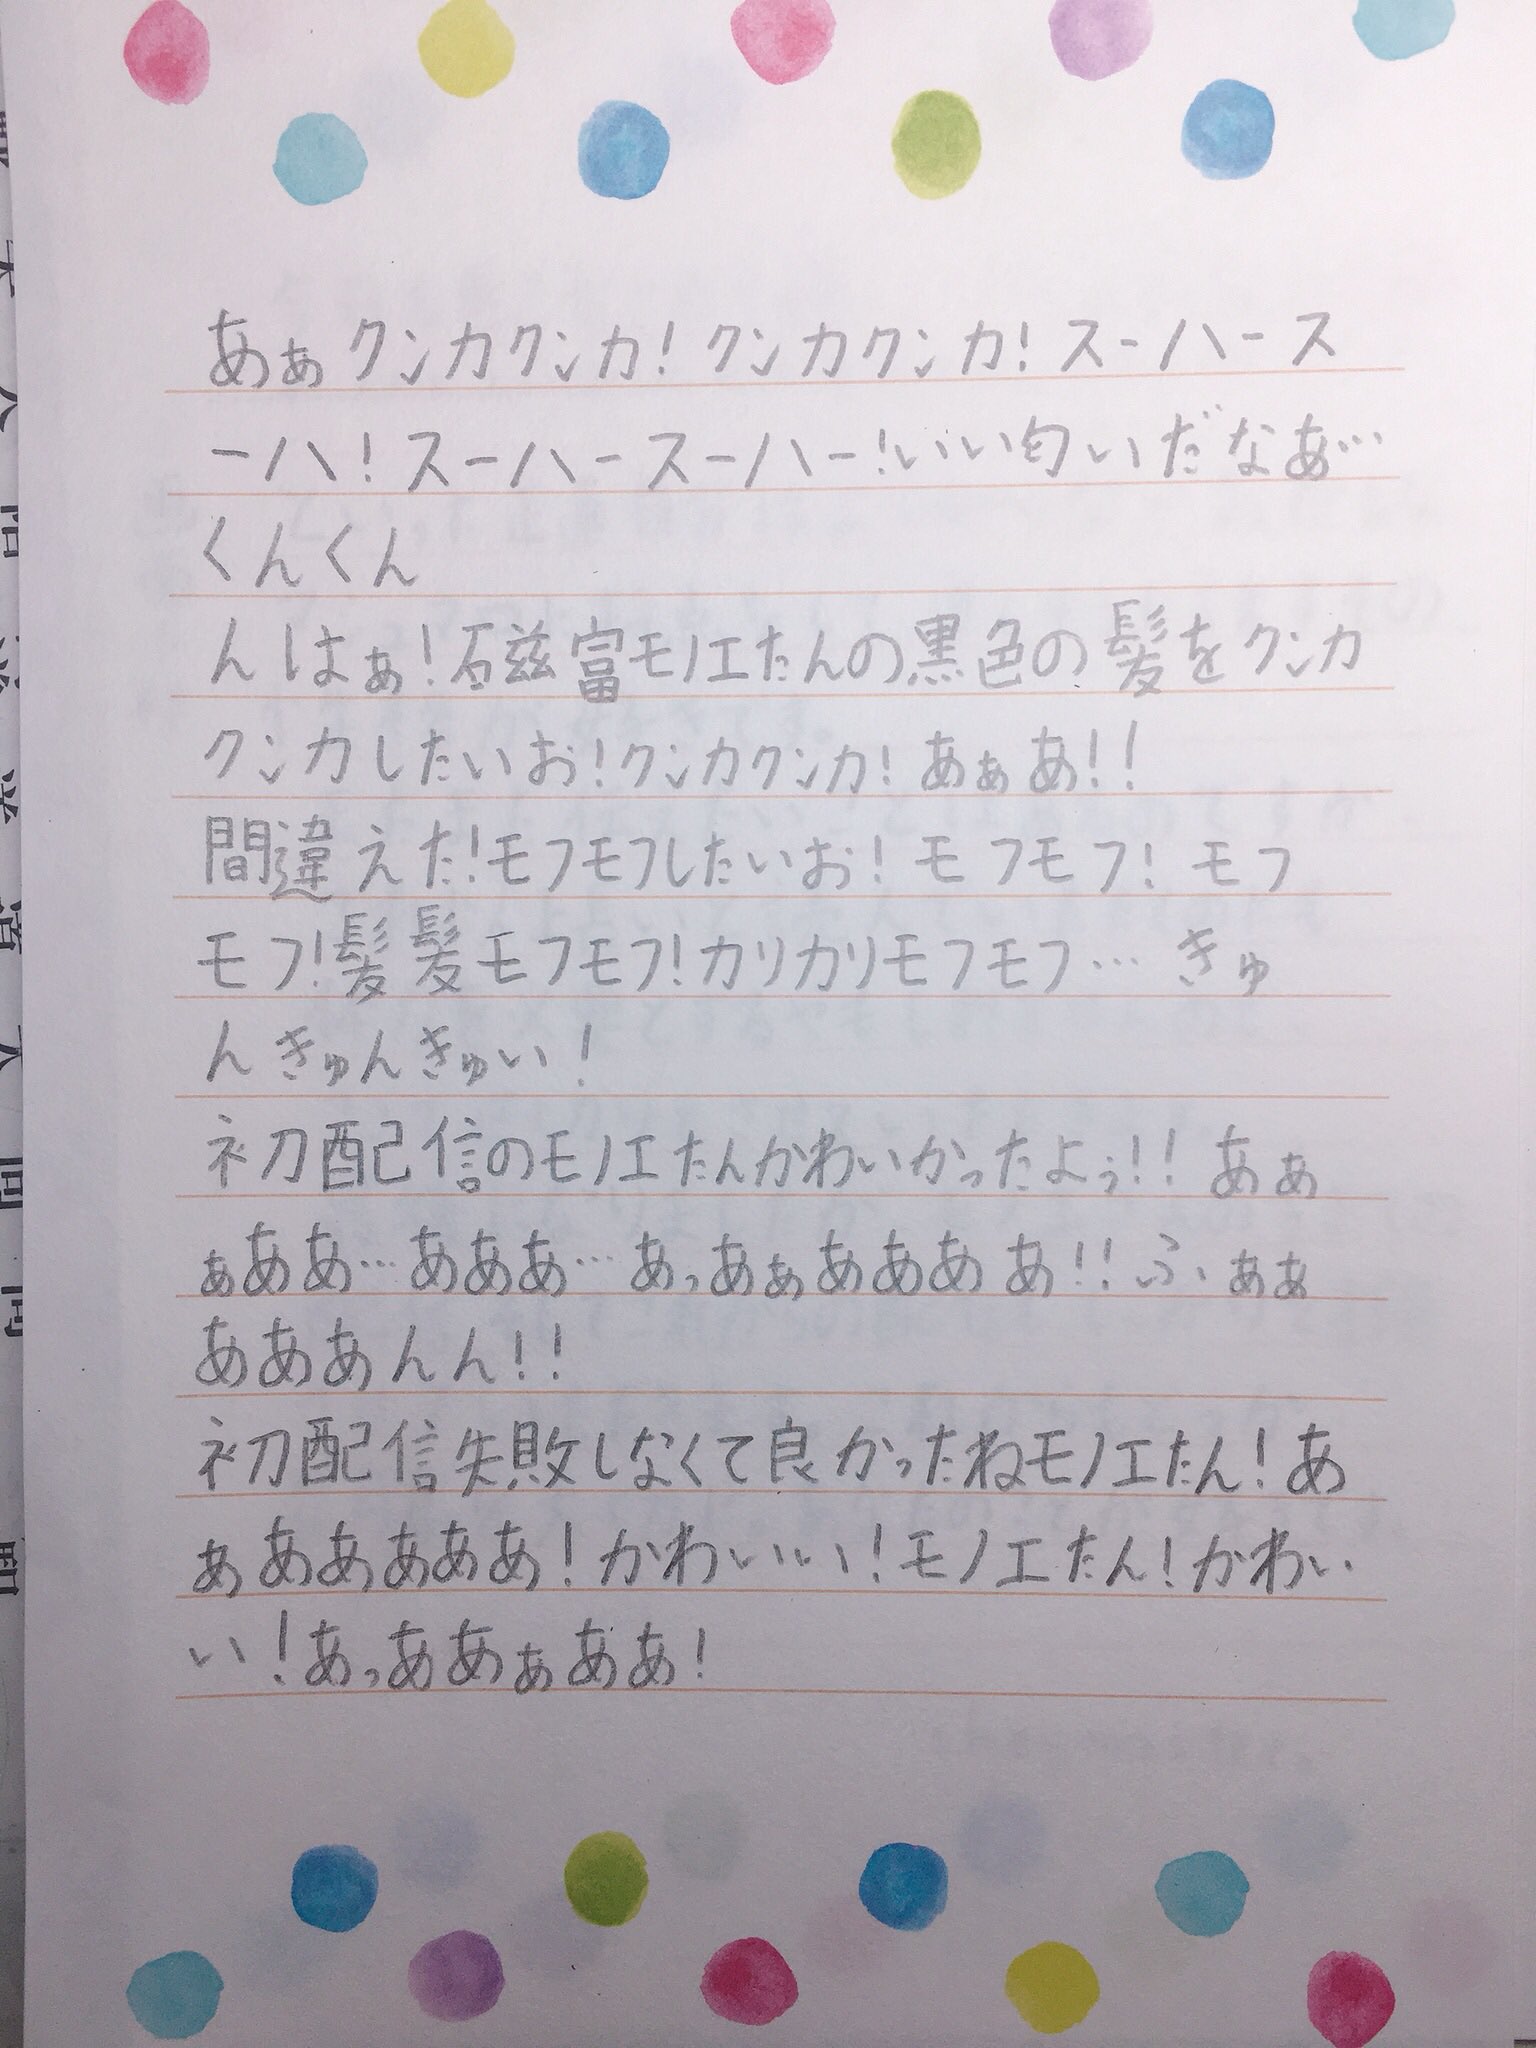 あぁクンカクンカ！クンカクンカ！スーハース
ーハ！スーハースーハー！いい匂いだなぁ…
くんくん
んはぁ！磁富モノエたんの黒色の髪をクンカ
クンカしたいお！クンカクンカ！あぁあ！！
間違えた！モフモフしたいお！モフモフ！モフ
モフ！髪髪モフモフ！カリカリモフモフ…きゅ
んきゅんきゅい！
初配信のモノエたんかわいかったよぅ！！あぁ
ぁああ…あああ…あっあぁああああ！！ふぁぁ
あああんん！！
初配信失敗しなくて良かったねモノエたん！あ
ぁあああああ！かわいい！モノエたん！かわい
い！あっああぁああ！